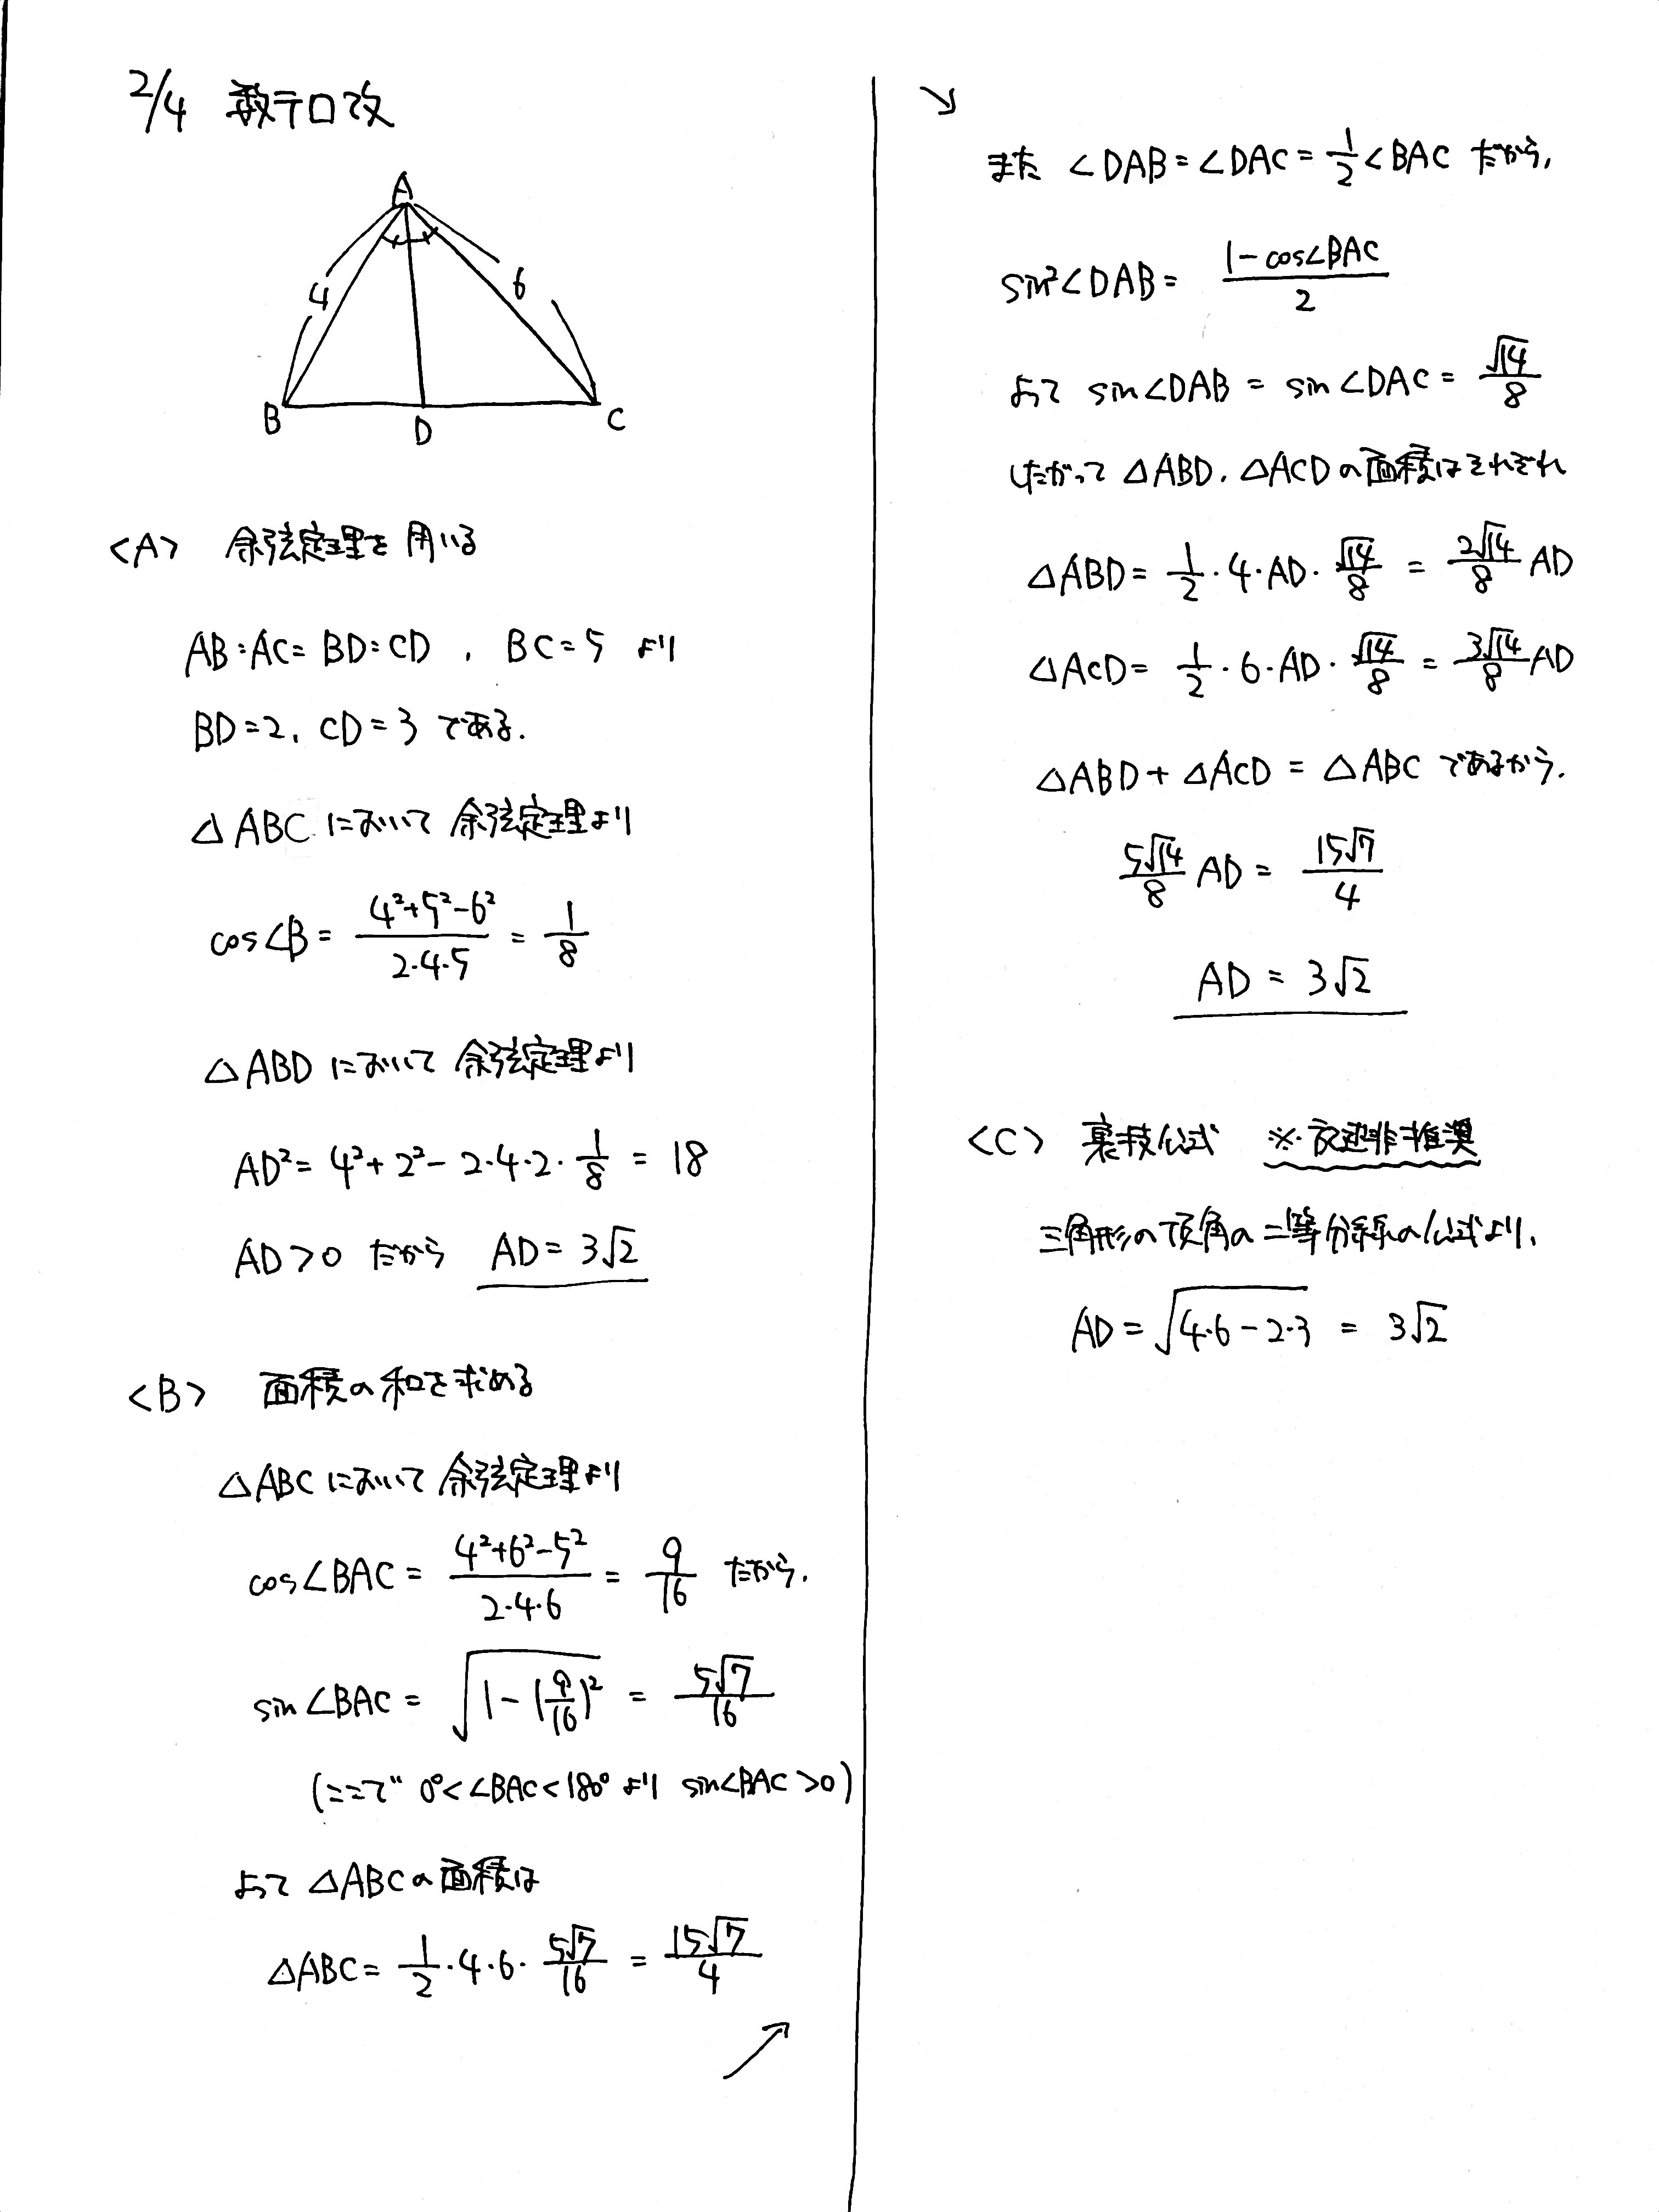 2/4 数テロ改
A
4
6
B
D
C
<A> 余弦定理を用いる
AB:AC=BD:CD , BC=5 より
BD=2, CD=3 である.
△ABCにおいて余弦定理より
cos∠B = (4²+5²-6²)/(2·4·5) = 1/8
△ABDにおいて余弦定理より
AD² = 4²+2²-2·4·2·1/8 = 18
AD>0 だから AD=3√2
<B> 面積の和を求める
△ABCにおいて余弦定理より
cos∠BAC = (4²+6²-5²)/(2·4·6) = 9/16 だから,
sin∠BAC = √(1-(9/16)²) = 5√7/16
(ここで 0°<∠BAC<180° より sin∠BAC>0)
よって △ABCの面積は
△ABC = 1/2·4·6·5√7/16 = 15√7/4
↗
↘
また ∠DAB=∠DAC=1/2∠BAC だから,
sin²∠DAB = (1-cos∠BAC)/2
よって sin∠DAB = sin∠DAC = √14/8
したがって △ABD, △ACDの面積はそれぞれ
△ABD = 1/2·4·AD·√14/8 = 2√14/8 AD
△ACD = 1/2·6·AD·√14/8 = 3√14/8 AD
△ABD+△ACD = △ABC であるから,
5√14/8 AD = 15√7/4
AD = 3√2
<C> 裏技公式 ※記述非推奨
三角形の頂角の二等分線の公式より,
AD = √(4·6-2·3) = 3√2